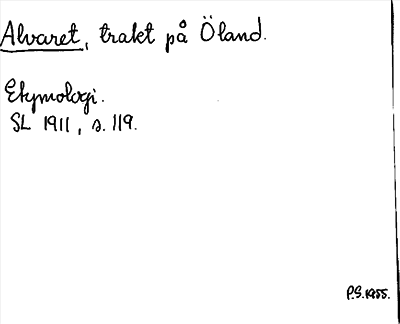 Alvaret, trakt på Öland.
Etymologi.
SL 1911, s. 119.
P.S. 1955.